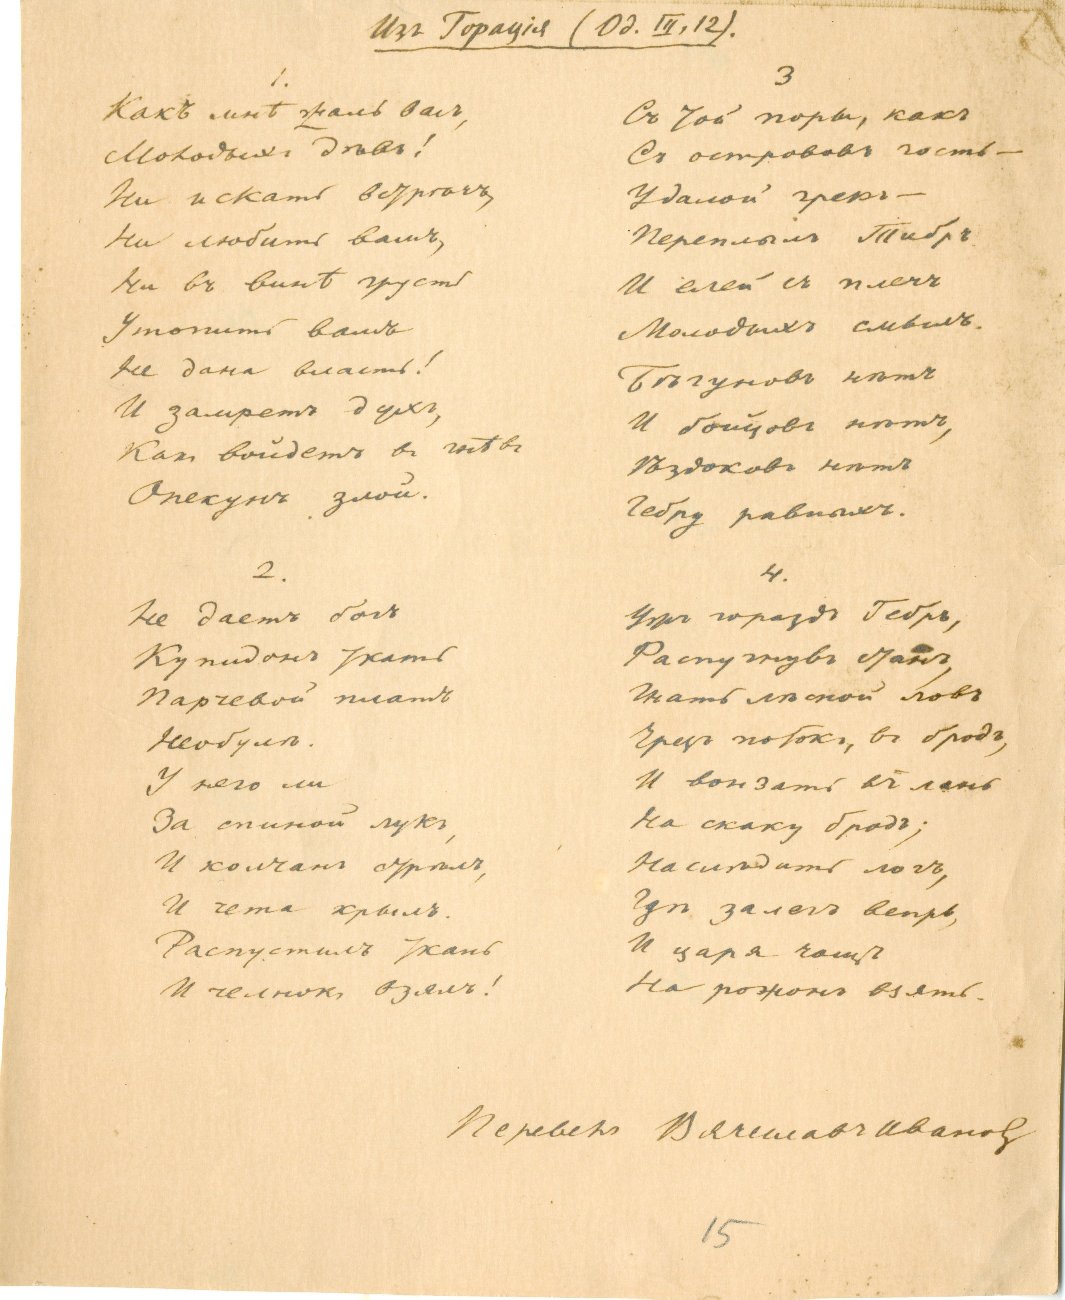 Изъ Горація (Од. III, 12).
1.
Какъ мнѣ жаль васъ,
Молодыхъ дѣвъ!
Ни искать встрѣчъ,
Ни любить вамъ,
Ни въ винѣ грусть
Утопить вамъ
Не дана власть!
И замретъ духъ,
Какъ войдетъ въ гнѣвѣ
Опекунъ злой.
2.
Не даетъ богъ
Купидонъ ткать
Парчевой платъ
Необулѣ.
У него ли
За спиной лукъ,
И колчанъ стрѣлъ,
И чета крылъ.
Распустилъ ткань
И челнокъ взялъ!
3
Съ той поры, какъ
Съ острововъ гость —
Удалой грекъ —
Переплылъ Тибръ
И елей съ плечъ
Молодыхъ смылъ.
Бѣгуновъ нѣтъ
И бойцовъ нѣтъ,
Ѣздоковъ нѣтъ
Гебру равныхъ.
4.
Ужъ гораздъ Гебръ,
Распугнувъ станъ,
Гнать лѣсной ловъ
Чрезъ потокъ, въ бродъ,
И вонзать въ лань
На скаку дротъ;
Наслѣдить логъ,
Гдѣ залегъ вепрь,
И царя чащъ
На рожонъ взять.
Перевелъ Вячеславъ Ивановъ
15